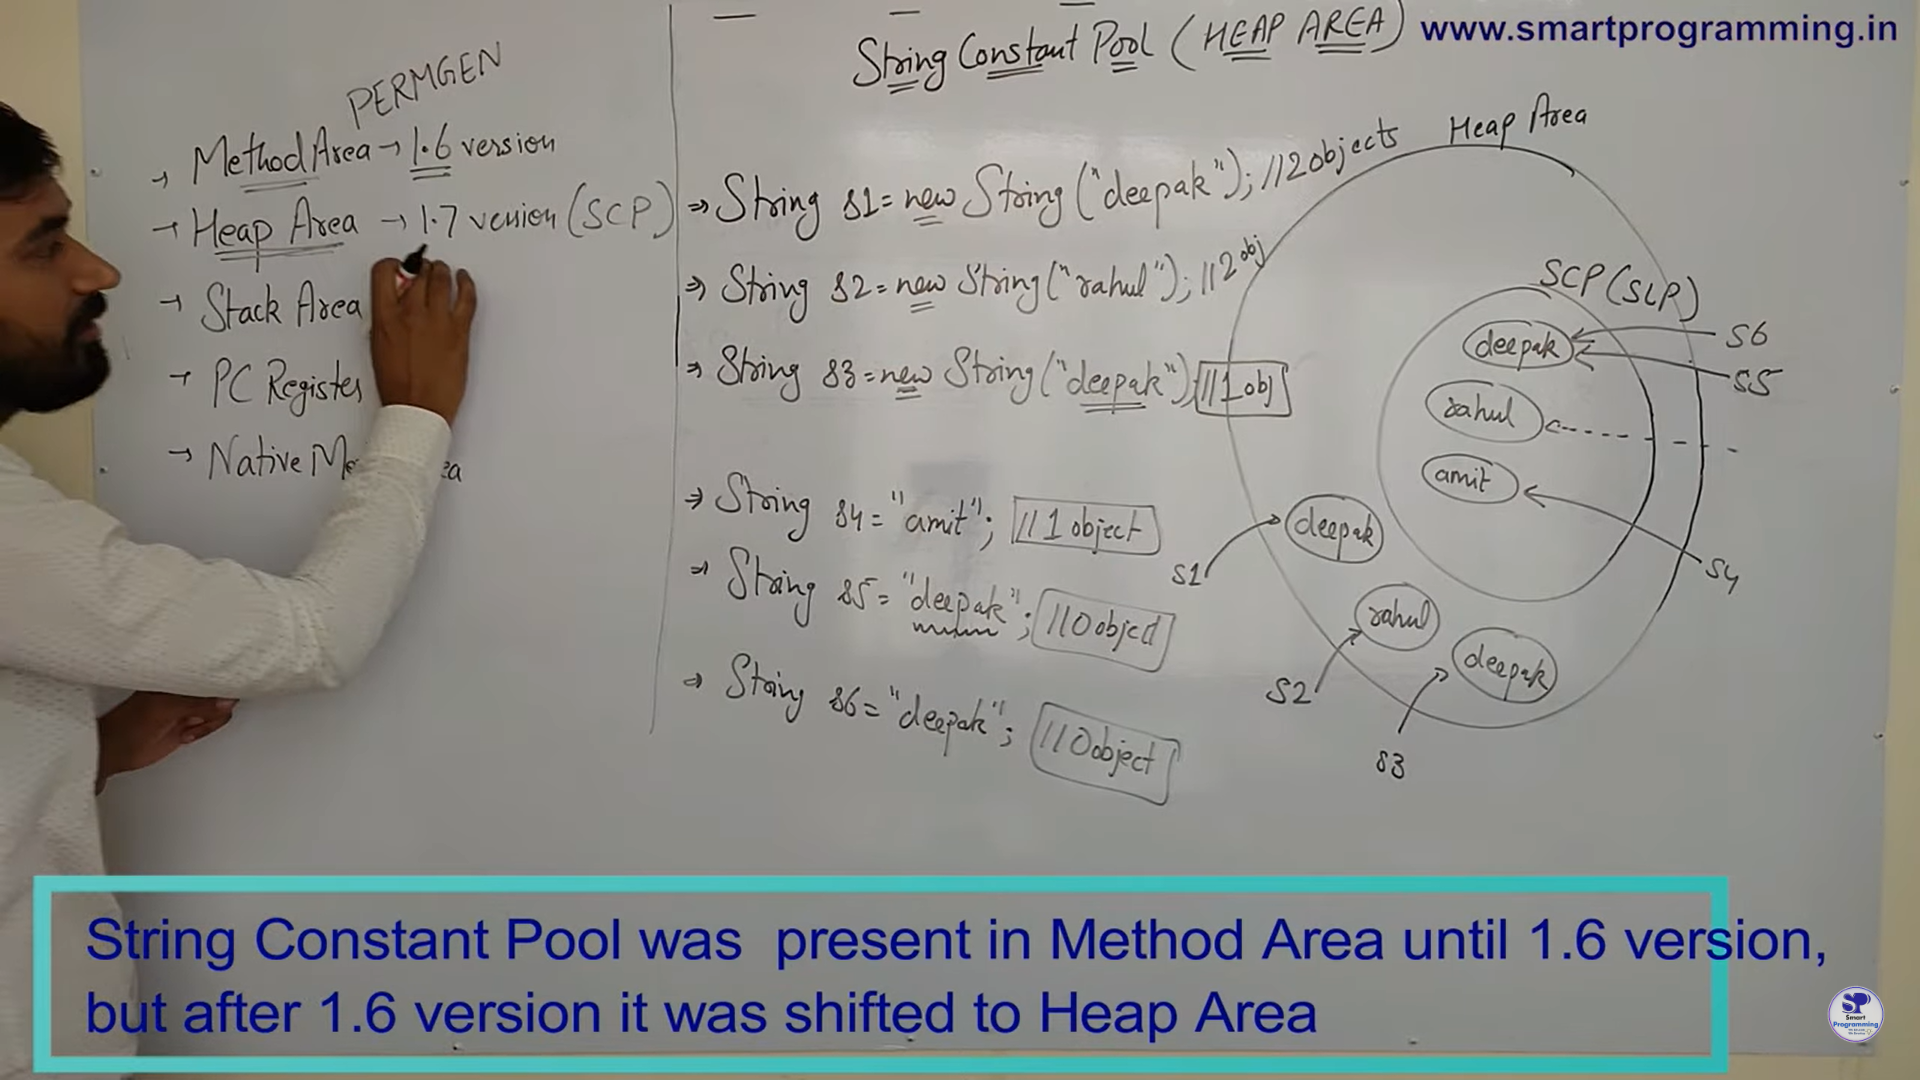 www.smartprogramming.in
String Constant Pool (HEAP AREA)
PERMGEN
→ Method Area → 1.6 version
→ Heap Area → 1.7 version (SCP)
→ Stack Area
→ PC Register
→ Native Me
ea
⇒ String s1 = new String("deepak"); //2 objects
⇒ String s2 = new String("rahul"); //2 obj
⇒ String s3 = new String("deepak") //1 obj
⇒ String s4 = "amit"; //1 object
⇒ String s5 = "deepak"; //0 object
⇒ String s6 = "deepak"; //0 object
Heap Area
SCP (SLP)
deepak
s6
s5
rahul
amit
s4
deepak
s1
rahul
s2
deepak
s3
String Constant Pool was present in Method Area until 1.6 version,
but after 1.6 version it was shifted to Heap Area
SP
Smart
Programming